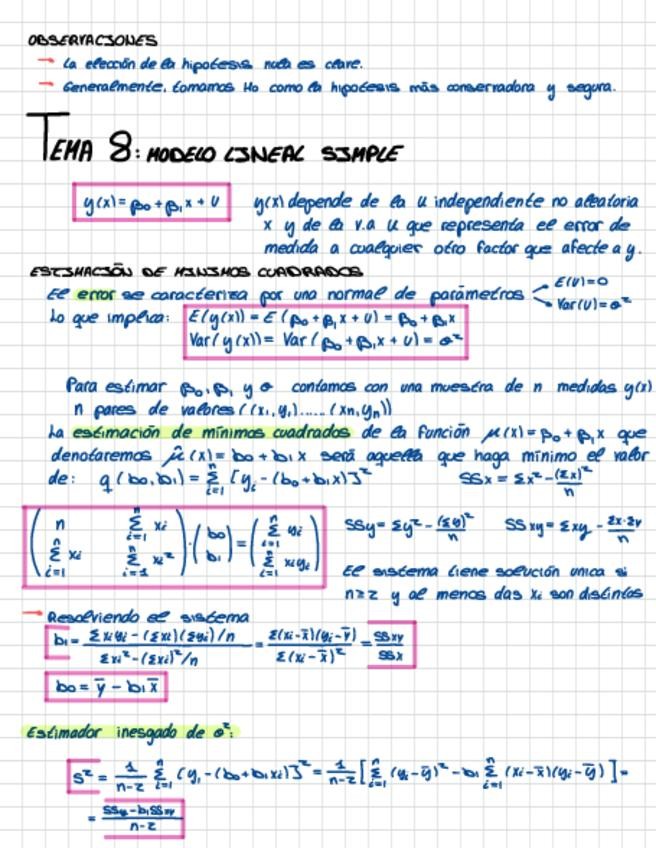 OBSERVACIONES
→ La elección de la hipótesis nula es clave.
→ Generalmente, tomamos H0 como la hipótesis más conservadora y segura.
TEMA 8: MODELO LINEAL SIMPLE
y(x) = β0 + β1x + U
y(x) depende de la u independiente no aleatoria
x y de la v.a u que representa el error de
medida a cualquier otro factor que afecte a y.
ESTIMACIÓN DE MINIMOS CUADRADOS
El error se caracteriza por una normal de parámetros
E(U)=0
Var(U)=σ²
Lo que implica:
E(y(x)) = E(β0 + β1x + U) = β0 + β1x
Var(y(x)) = Var(β0 + β1x + U) = σ²
Para estimar β0, β1 y σ contamos con una muestra de n medidas y(x)
n pares de valores ((x1,y1)......(xn,yn))
La estimación de mínimos cuadrados de la función μ(x) = β0 + β1x que
denotaremos μ̂(x) = b0 + b1x será aquella que haga mínimo el valor
de: q(b0,b1) = Σ_{i=1}^{n} [yi - (b0+b1x)]²
SSx = Σx² - (Σx)²/n
( n   Σ_{i=1}^{n} xi ; Σ_{i=1}^{n} xi   Σ_{i=1}^{n} xi² ) · ( b0 ; b1 ) = ( Σ_{i=1}^{n} yi ; Σ_{i=1}^{n} xiyi )
SSy = Σy² - (Σy)²/n
SSxy = Σxy - Σx·Σy/n
El sistema tiene solución unica si
n≥2 y al menos das xi son distintos
→ Resolviendo el sistema
b1 = (Σxiyi - (Σxi)(Σyi)/n) / (Σxi² - (Σxi)²/n) = Σ(xi-x̄)(yi-ȳ) / Σ(xi-x̄)² = SSxy / SSx
b0 = ȳ - b1x̄
Estimador inesgado de σ²:
S² = 1/(n-2) Σ_{i=1}^{n} (yi - (b0+b1xi)]² = 1/(n-2) [Σ_{i=1}^{n} (yi-ȳ)² - b1 Σ_{i=1}^{n} (xi-x̄)(yi-ȳ)] =
= (SSy - b1SSxy) / (n-2)